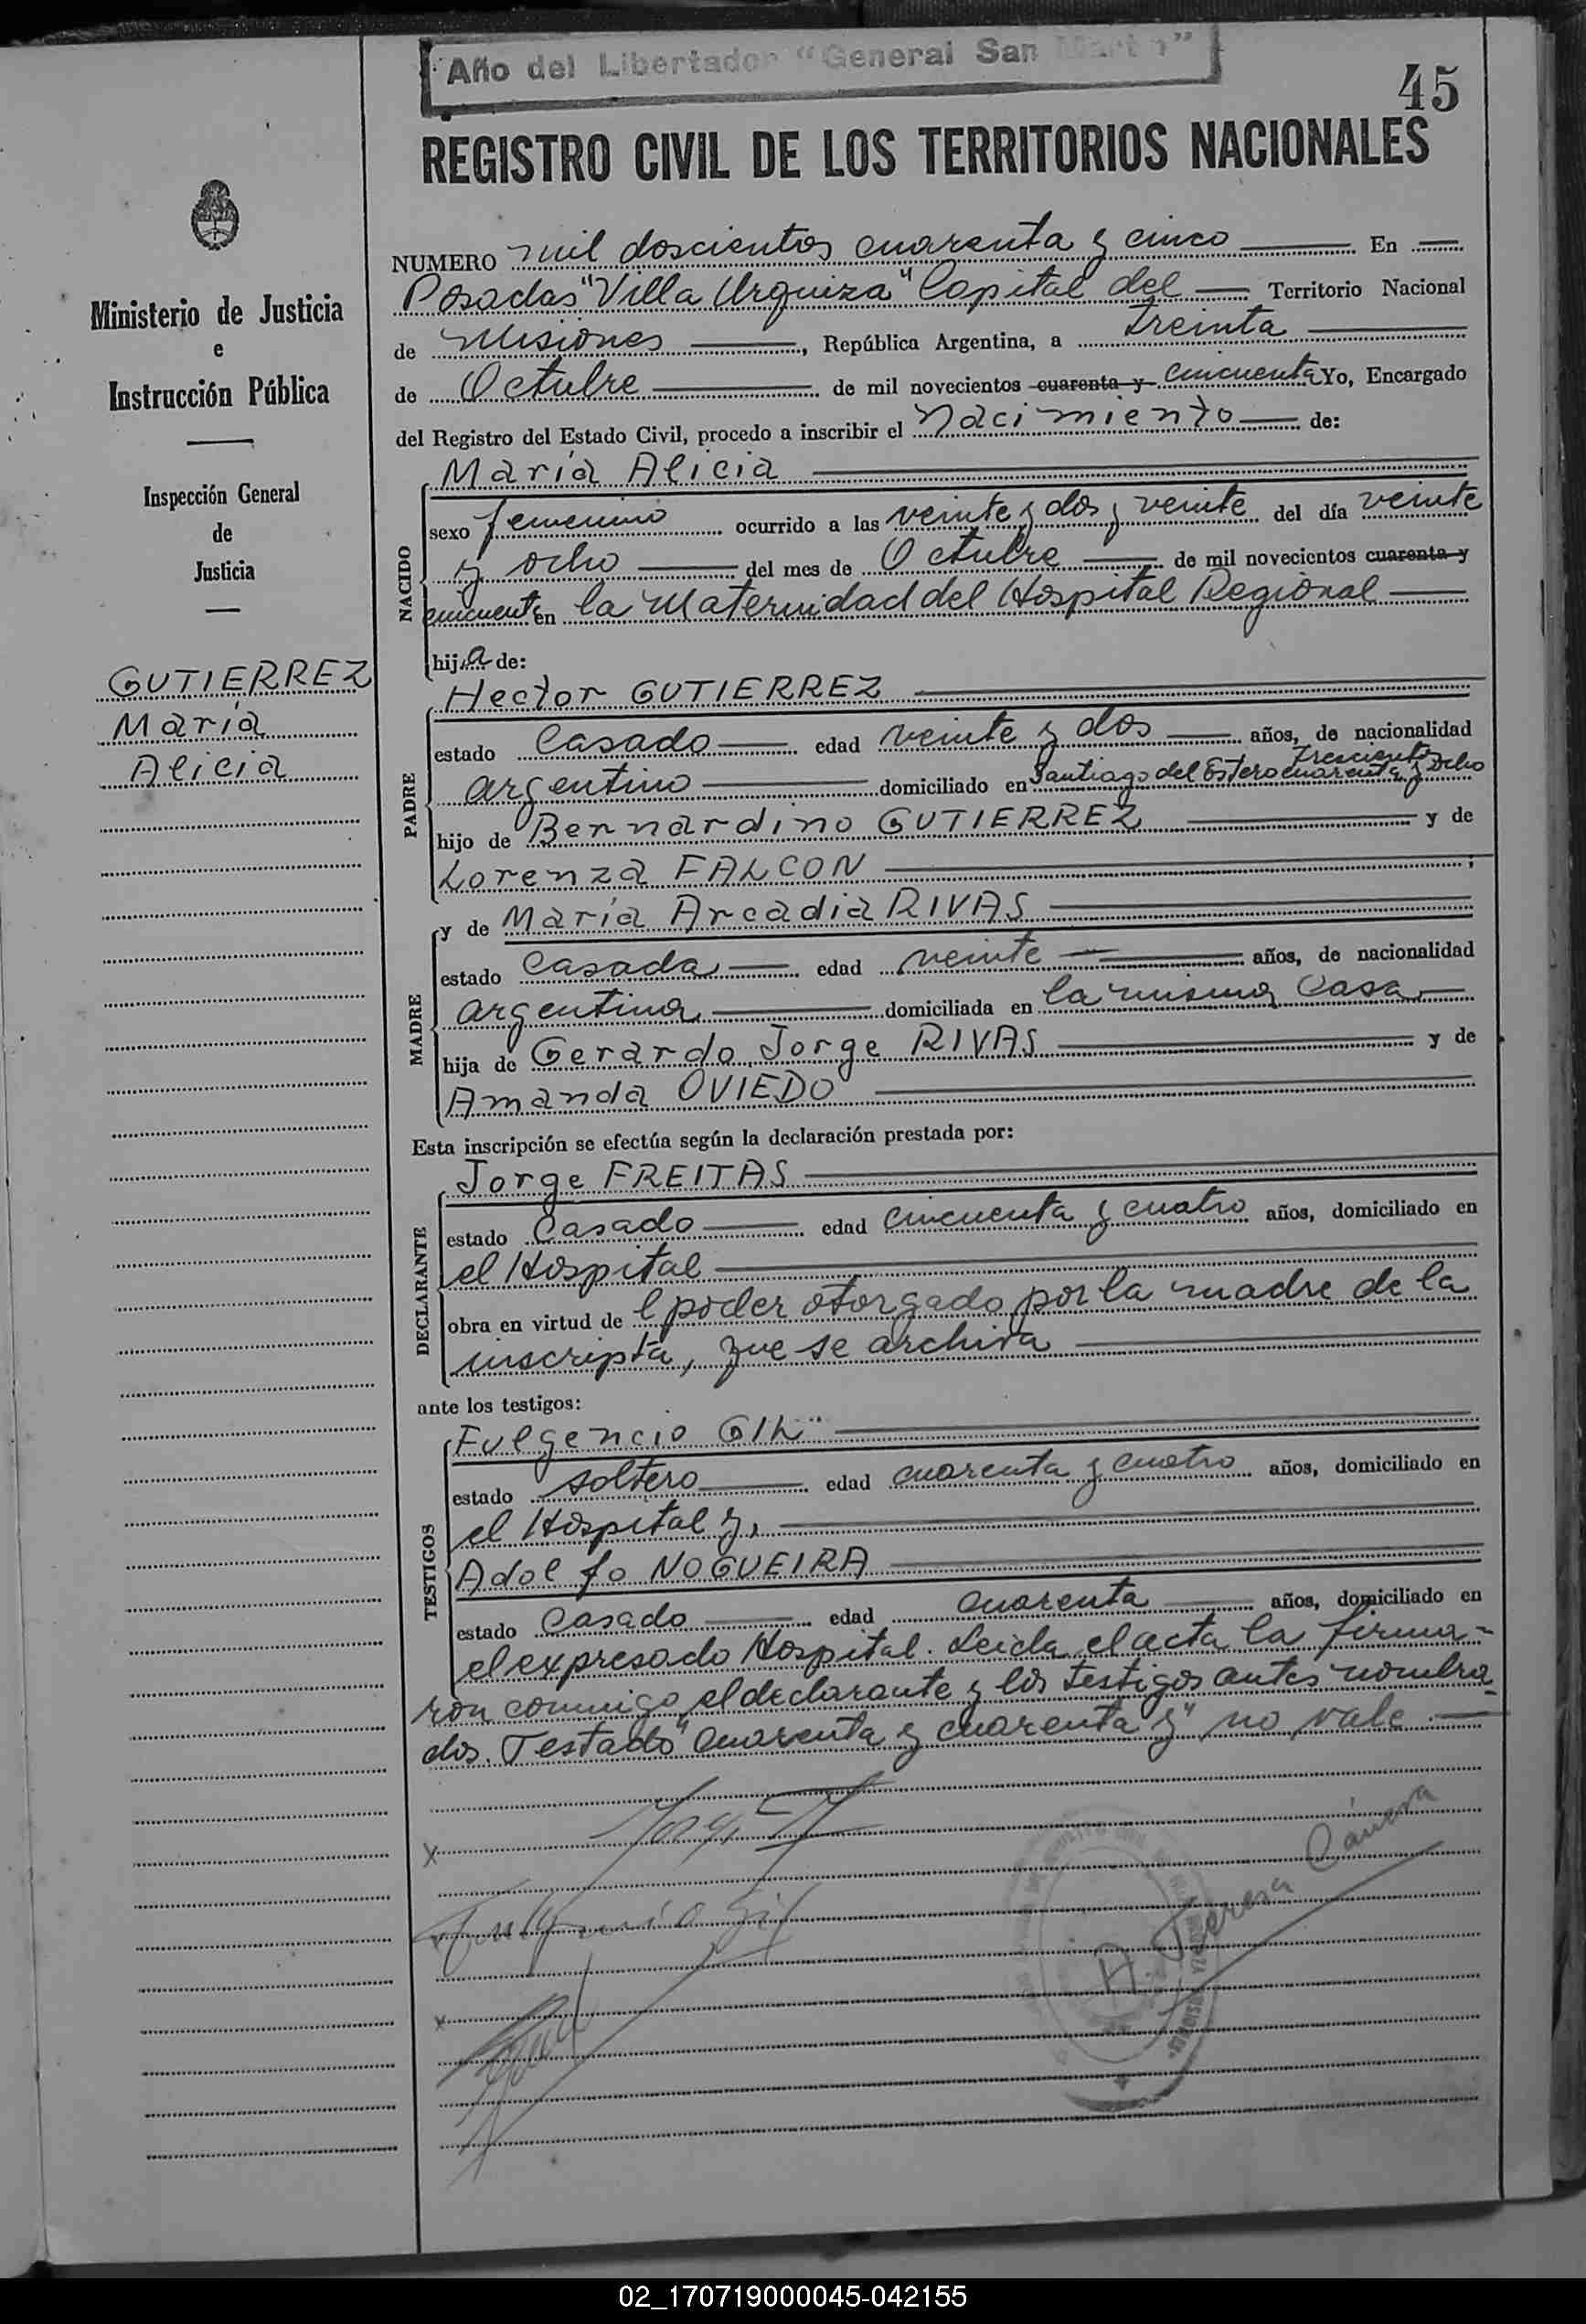 Año del Libertador "General San Martín"
45
REGISTRO CIVIL DE LOS TERRITORIOS NACIONALES
Ministerio de Justicia
e
Instrucción Pública
Inspección General
de
Justicia
GUTIERREZ
María
Alicia
NUMERO mil doscientos cuarenta y cinco En
Posadas "Villa Urquiza" Capital del Territorio Nacional
de Misiones, República Argentina, a treinta
de Octubre de mil novecientos cuarenta y cincuenta Yo, Encargado
del Registro del Estado Civil, procedo a inscribir el nacimiento de:
NACIDO
María Alicia
sexo femenino ocurrido a las veinte y dos y veinte del día veinte
y ocho del mes de Octubre de mil novecientos cuarenta y
cincuenta en la Maternidad del Hospital Regional
hija de:
PADRE
Hector GUTIERREZ
estado Casado edad veinte y dos años, de nacionalidad
argentino domiciliado en Santiago del Estero trescientos cuarenta y ocho
hijo de Bernardino GUTIERREZ y de
Lorenza FALCON ;
MADRE
y de María Arcadia RIVAS
estado Casada edad veinte años, de nacionalidad
argentina domiciliada en la misma Casa
hija de Gerardo Jorge RIVAS y de
Amanda OVIEDO
Esta inscripción se efectúa según la declaración prestada por:
DECLARANTE
Jorge FREITAS
estado Casado edad cincuenta y cuatro años, domiciliado en
el Hospital
obra en virtud de l poder otorgado por la madre de la
inscripta, que se archiva
ante los testigos:
TESTIGOS
Fulgencio GIL
estado soltero edad cuarenta y cuatro años, domiciliado en
el Hospital y,
Adolfo NOGUEIRA
estado Casado edad cuarenta años, domiciliado en
el expresado Hospital. Leida el acta la firma-
ron conmigo, el declarante y los testigos antes nombra-
dos. Testado "cuarenta y cuarenta y" no vale.
x
Fulgencio Gil
x
A. Teresa Cánova
02_170719000045-042155